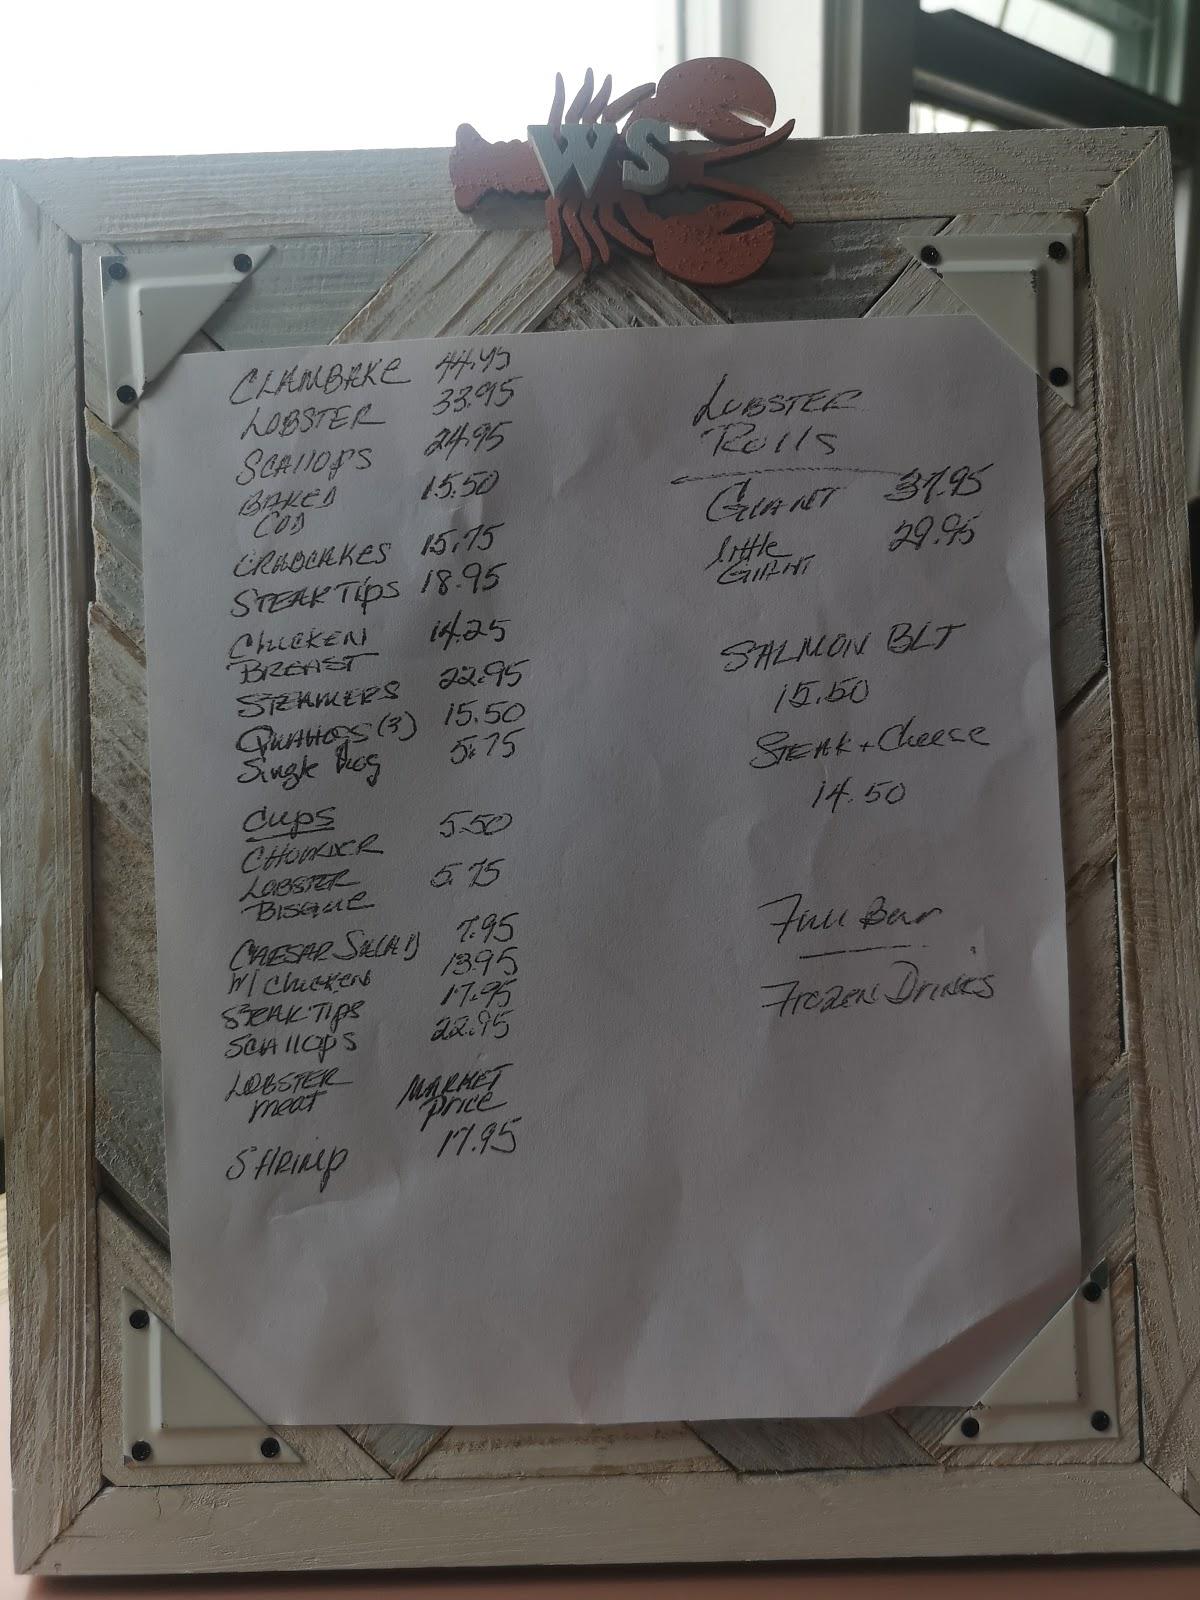 WS
CLAMBAKE 44.95
LOBSTER 33.95
SCALLOPS 24.95
BAKED 15.50
COD
CRABCAKES 15.75
STEAK TIPS 18.95
CHICKEN 14.25
BREAST
STEAMERS 22.95
QUAHOGS (3) 15.50
Single hog 5.75
CUPS
CHOWDER 5.50
LOBSTER 5.75
BISQUE
CAESAR SALAD 7.95
W/ CHICKEN 13.95
STEAK TIPS 17.95
SCALLOPS 22.95
LOBSTER MARKET
meat price
SHRIMP 17.95
LOBSTER
Rolls
GIANT 37.95
little 29.95
GIANT
SALMON BLT
15.50
STEAK + Cheese
14.50
Full Bar
FROZEN DRINKS